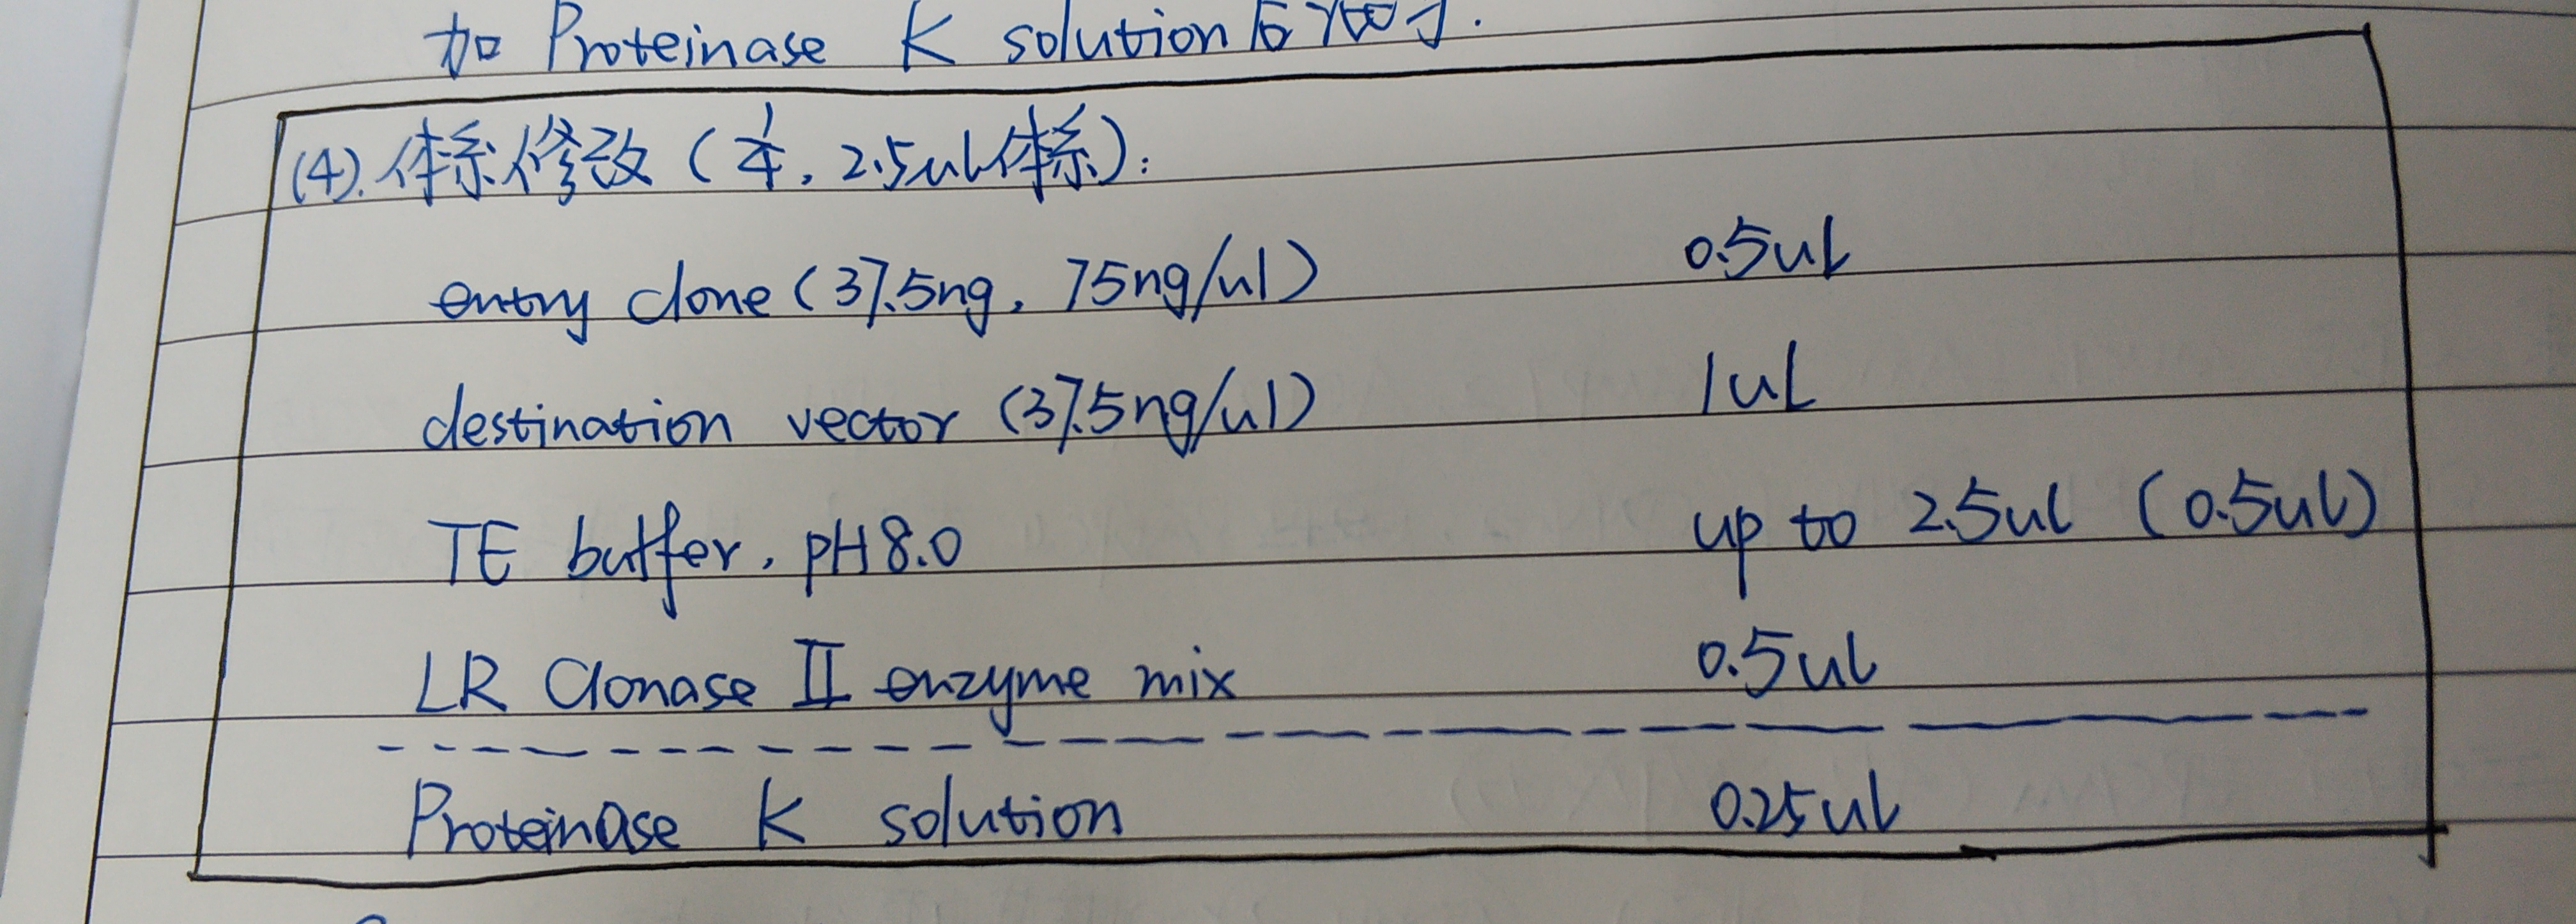 加 Proteinase K solution后
(4). 体系修改 (1/4, 2.5ul体系):
entry clone (37.5ng, 75ng/ul) 0.5ul
destination vector (37.5ng/ul) 1ul
TE buffer, pH8.0 up to 2.5ul (0.5ul)
LR Clonase II enzyme mix 0.5ul
Proteinase K solution 0.25ul